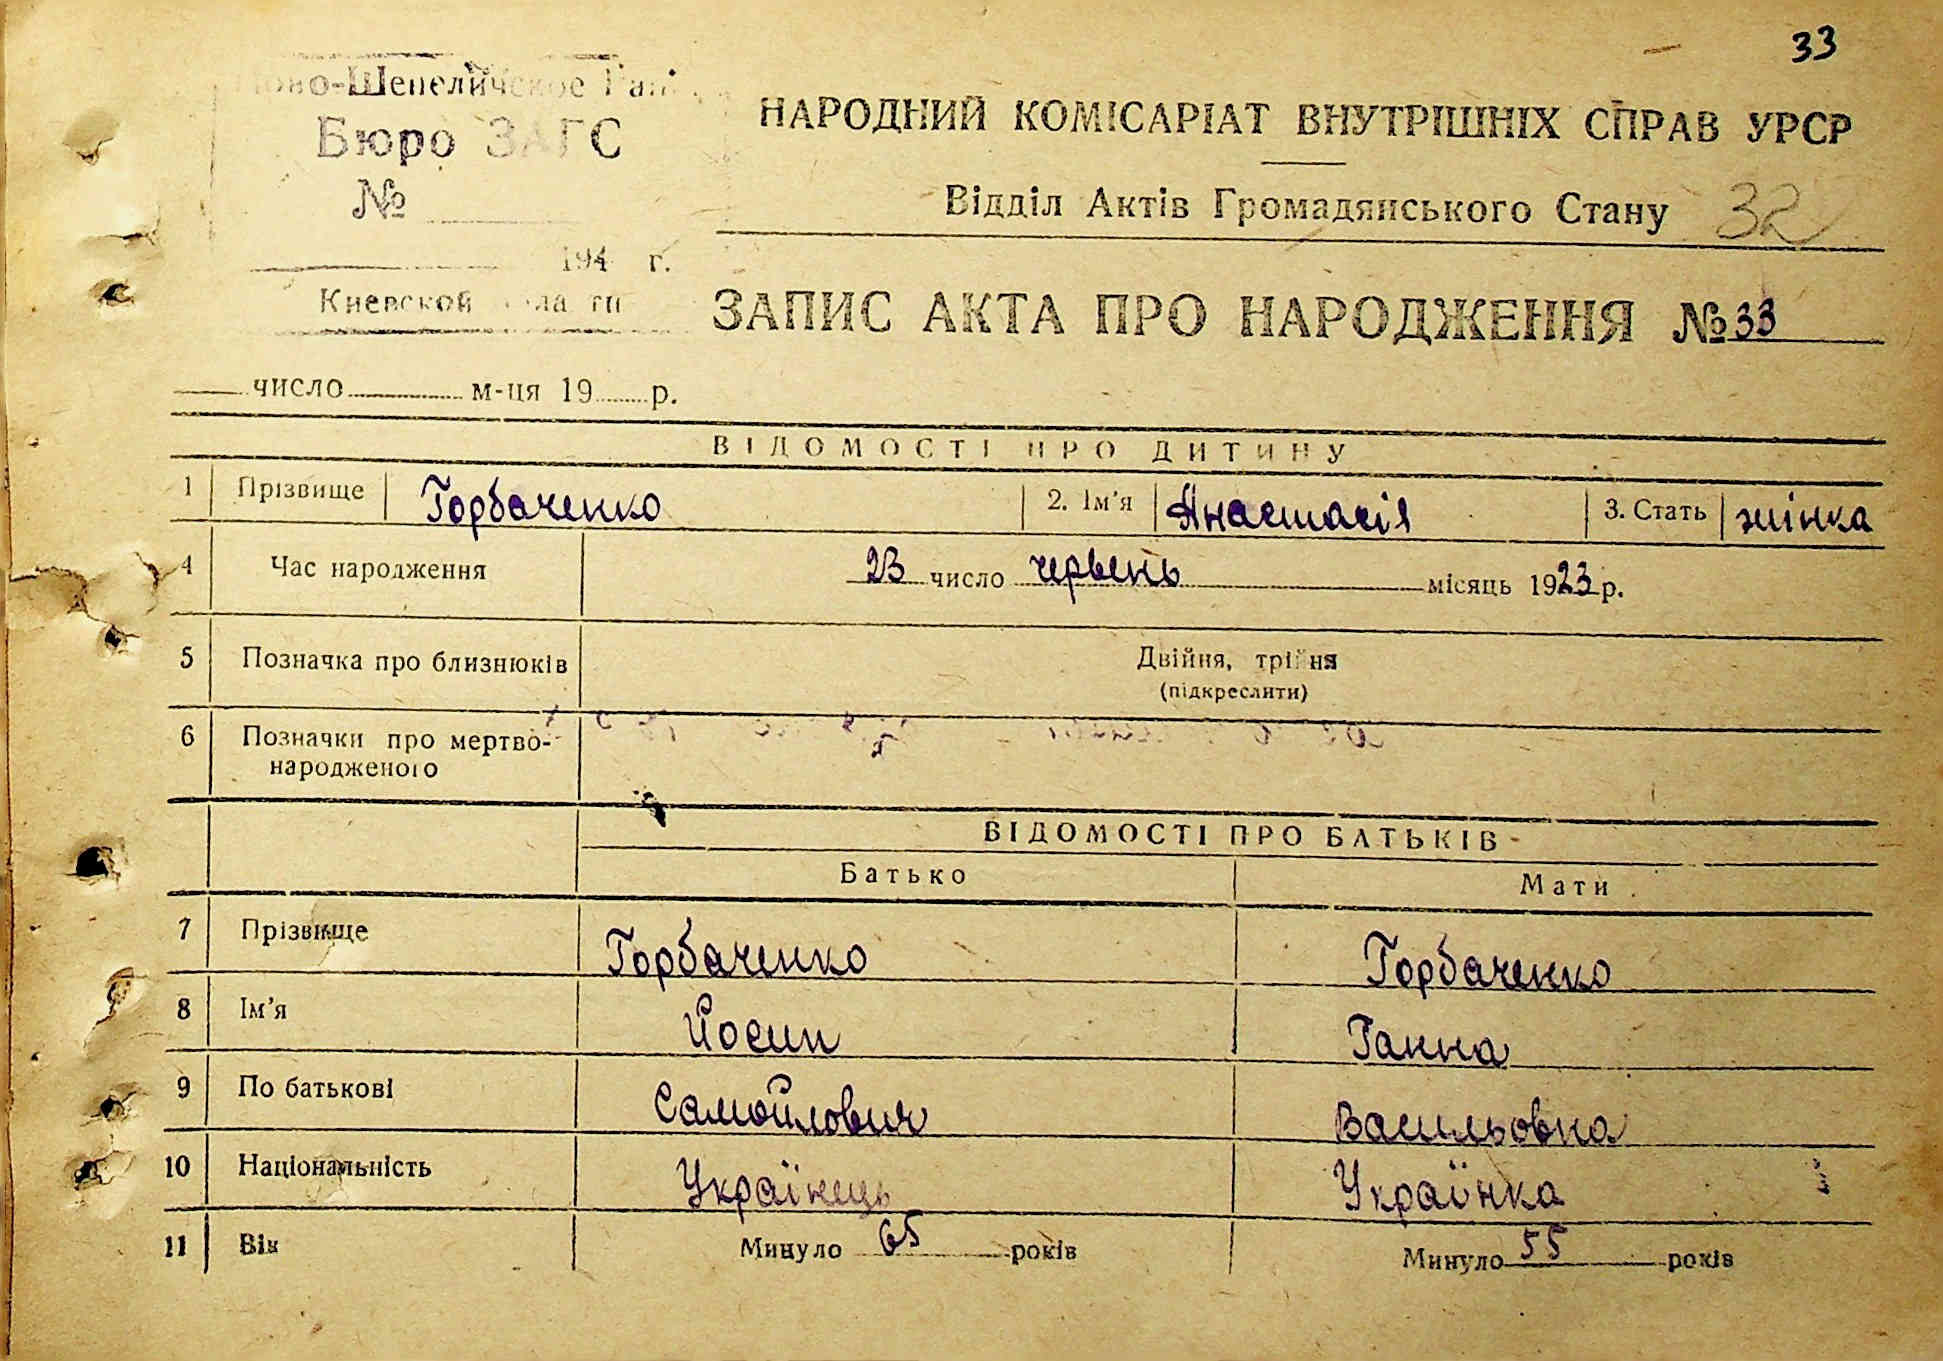 33
Ново-Шепеличское
Бюро ЗАГС
№
194 г.
Киевской
НАРОДНИЙ КОМІСАРІАТ ВНУТРІШНІХ СПРАВ УРСР
Відділ Актів Громадянського Стану 32
ЗАПИС АКТА ПРО НАРОДЖЕННЯ № 33
число м-ця 19 р.
ВІДОМОСТІ ПРО ДИТИНУ
1 Прізвище Горбаченко 2. Ім'я Анастасія 3. Стать жінка
4 Час народження 23 число червень місяць 1923 р.
5 Позначка про близнюків Двійня, трійня
(підкреслити)
6 Позначки про мертво-
народженого
ВІДОМОСТІ ПРО БАТЬКІВ
Батько Мати
7 Прізвище Горбаченко Горбаченко
8 Ім'я Йосип Ганна
9 По батькові Самойлович Васильовна
10 Національність Українець Українка
11 Вік Минуло 65 років Минуло 55 років